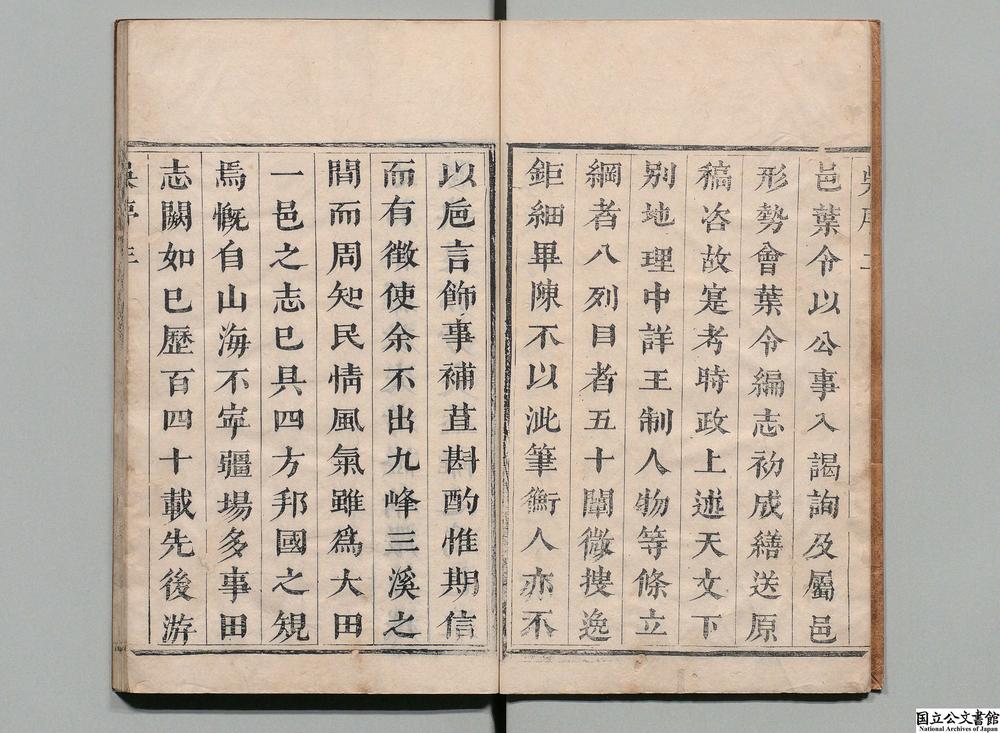 邑葉令以公事入謁詢及屬邑
形勢會葉令編志初成繕送原
稿咨故寔考時政上述天文下
別地理中詳王制人物等條立
綱者八列目者五十闡微搜逸
鉅細畢陳不以泚筆衡人亦不
以巵言飾事補苴斟酌惟期信
而有徵使余不出九峰三溪之
間而周知民情風氣雖爲大田
一邑之志巳具四方邦國之規
焉慨自山海不寜疆場多事田
志闕如巳歷百四十載先後游
国立公文書館
National Archives of Japan